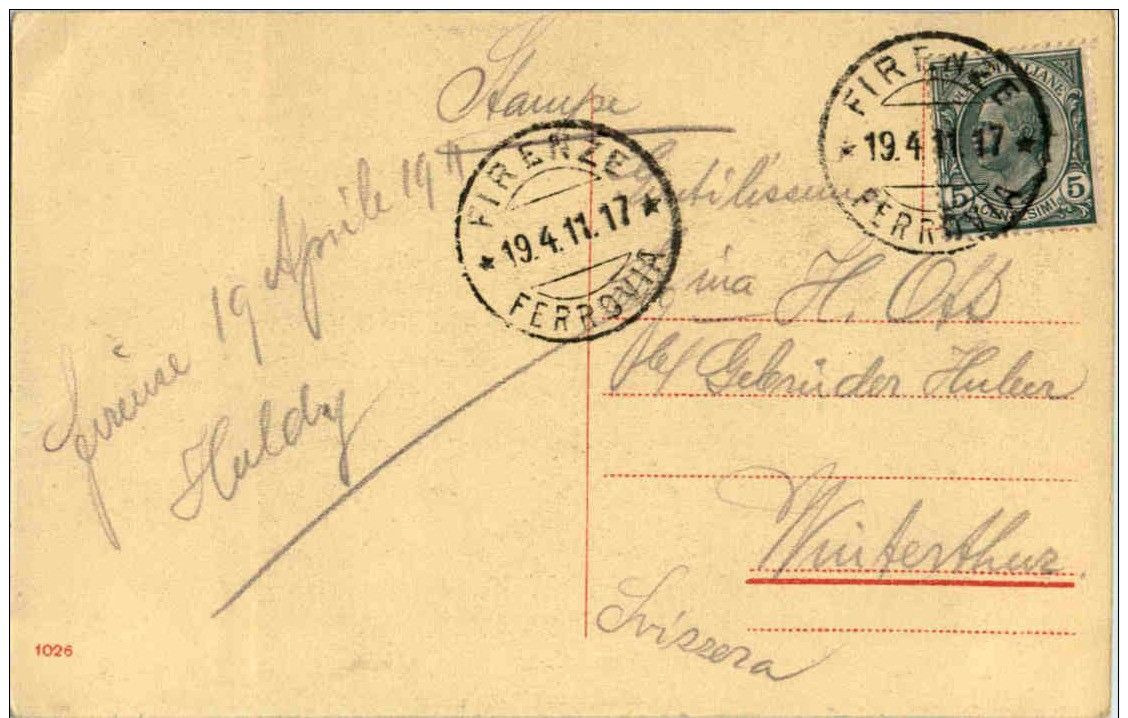 Stampe
FIRENZE
19.4.11.17
FERROVIA
FIRENZE
19.4.11 17
FERROVIA
5 CENTESIMI 5
19 Aprile 1911
Gentilissima
H. Ott
Gebrüder Huber
Winterthur
Svizzera
1026